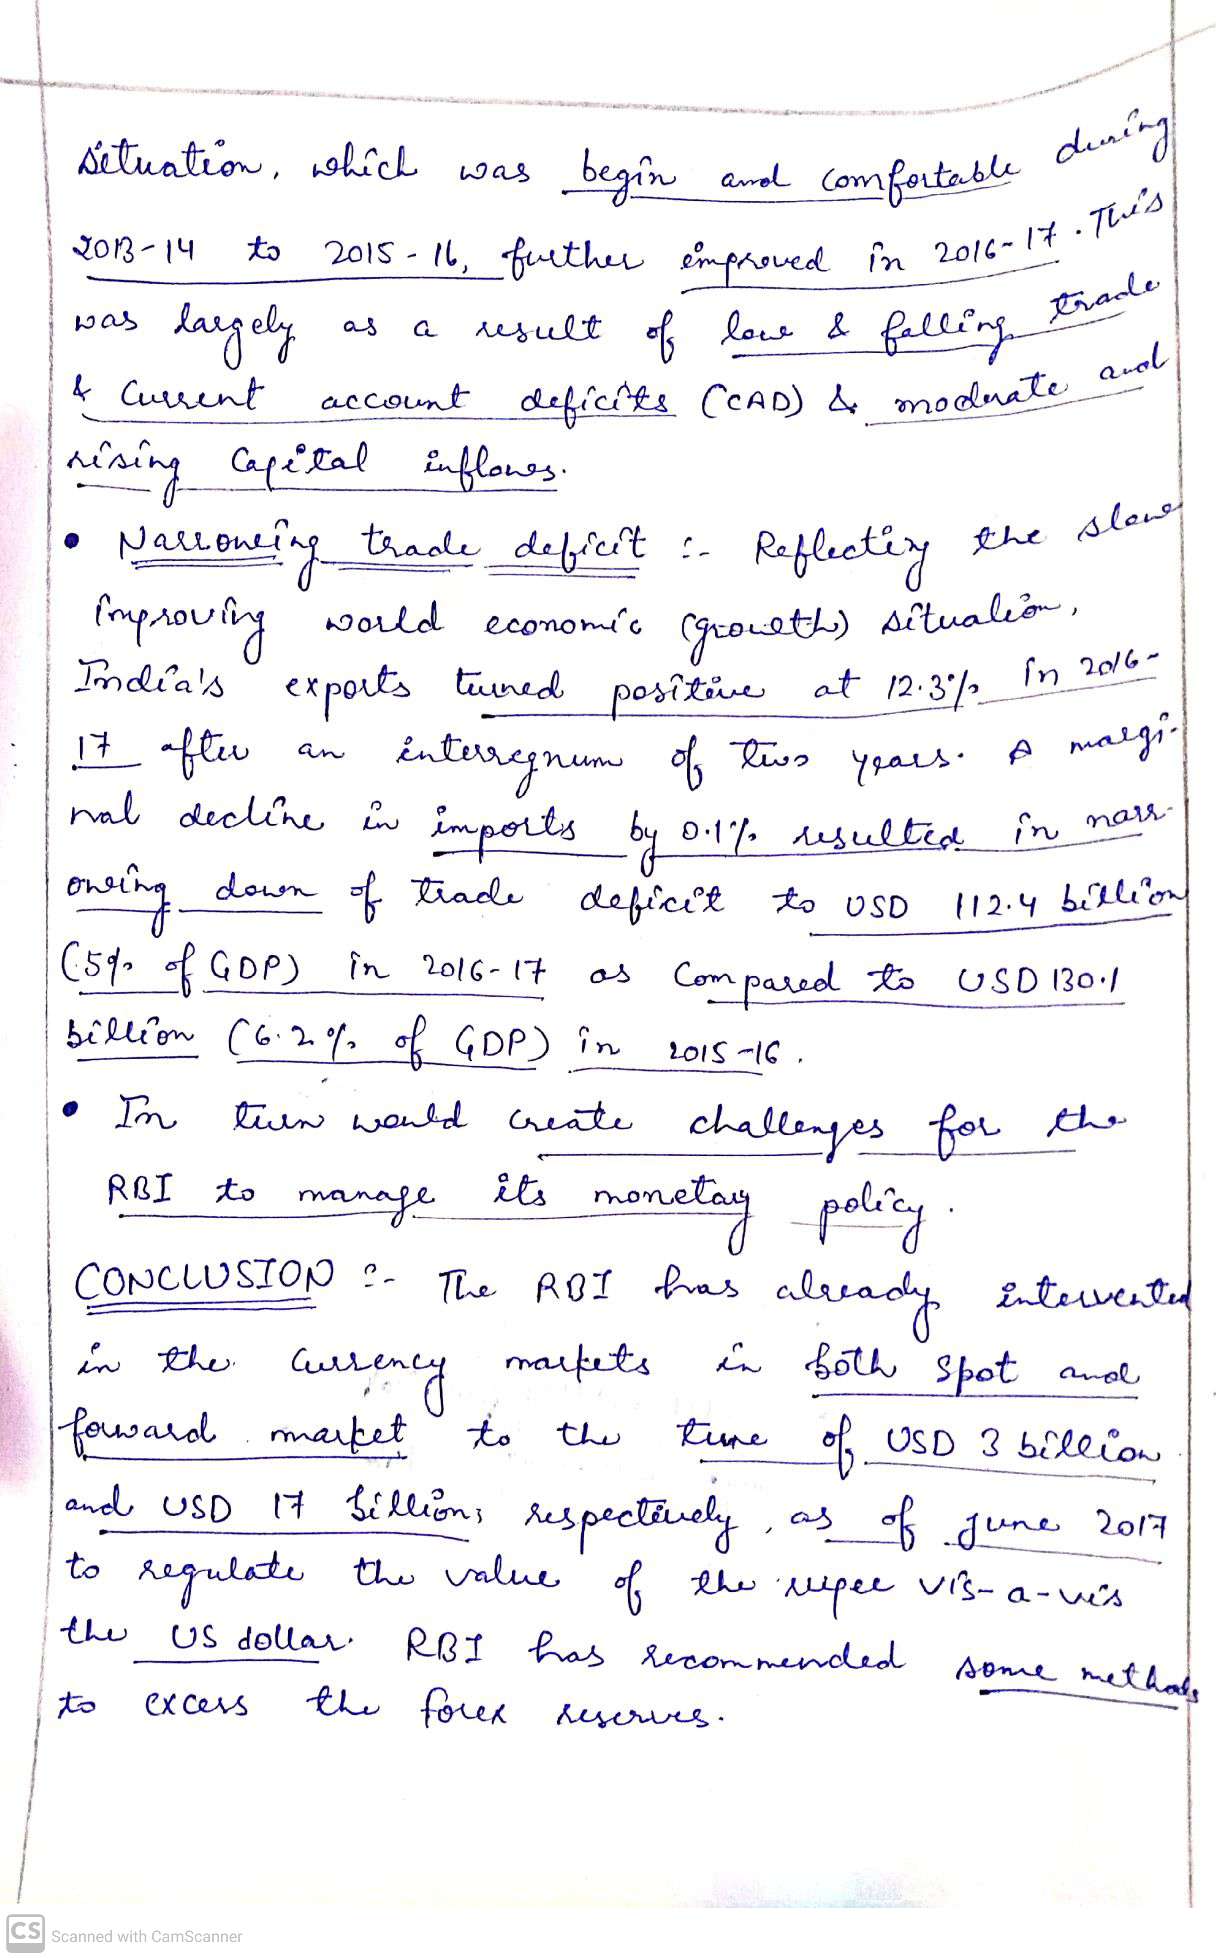 situation, which was begin and comfortable during
2013-14 to 2015-16, further improved in 2016-17. This
was largely as a result of low & falling trade
& Current account deficits (CAD) & moderate and
rising Capital inflows.
• Narrowing trade deficit :- Reflecting the slow
improving world economic (growth) situation,
India's exports turned positive at 12.3% in 2016-
17 after an interregnum of two years. A margi-
nal decline in imports by 0.1% resulted in narr-
owing down of trade deficit to USD 112.4 billion
(5% of GDP) in 2016-17 as Compared to USD 130.1
billion (6.2% of GDP) in 2015-16.
• In turn would create challenges for the
RBI to manage its monetay policy.
CONCLUSION :- The RBI has already intervented
in the currency markets in both spot and
forward market to the tune of USD 3 billion
and USD 17 billion; respectively, as of June 2017
to regulate the value of the rupee vis-a-vis
the US dollar. RBI has recommended some methods
to excess the forex reserves.
CS Scanned with CamScanner